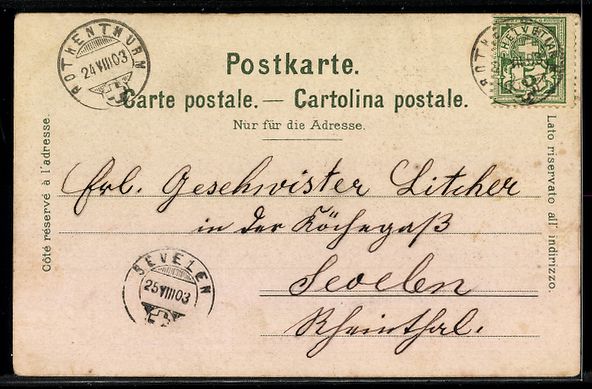 ROTHENTHURM
24 VIII 03
HELVETIA
5
Postkarte.
Carte postale. — Cartolina postale.
Nur für die Adresse.
Côté réservé à l'adresse.
Lato riservato all' indirizzo.
Frl. Geschwister Litcher
in der Köchegaß
Sevelen
Rheinthal.
SEVELEN
25 VIII 03